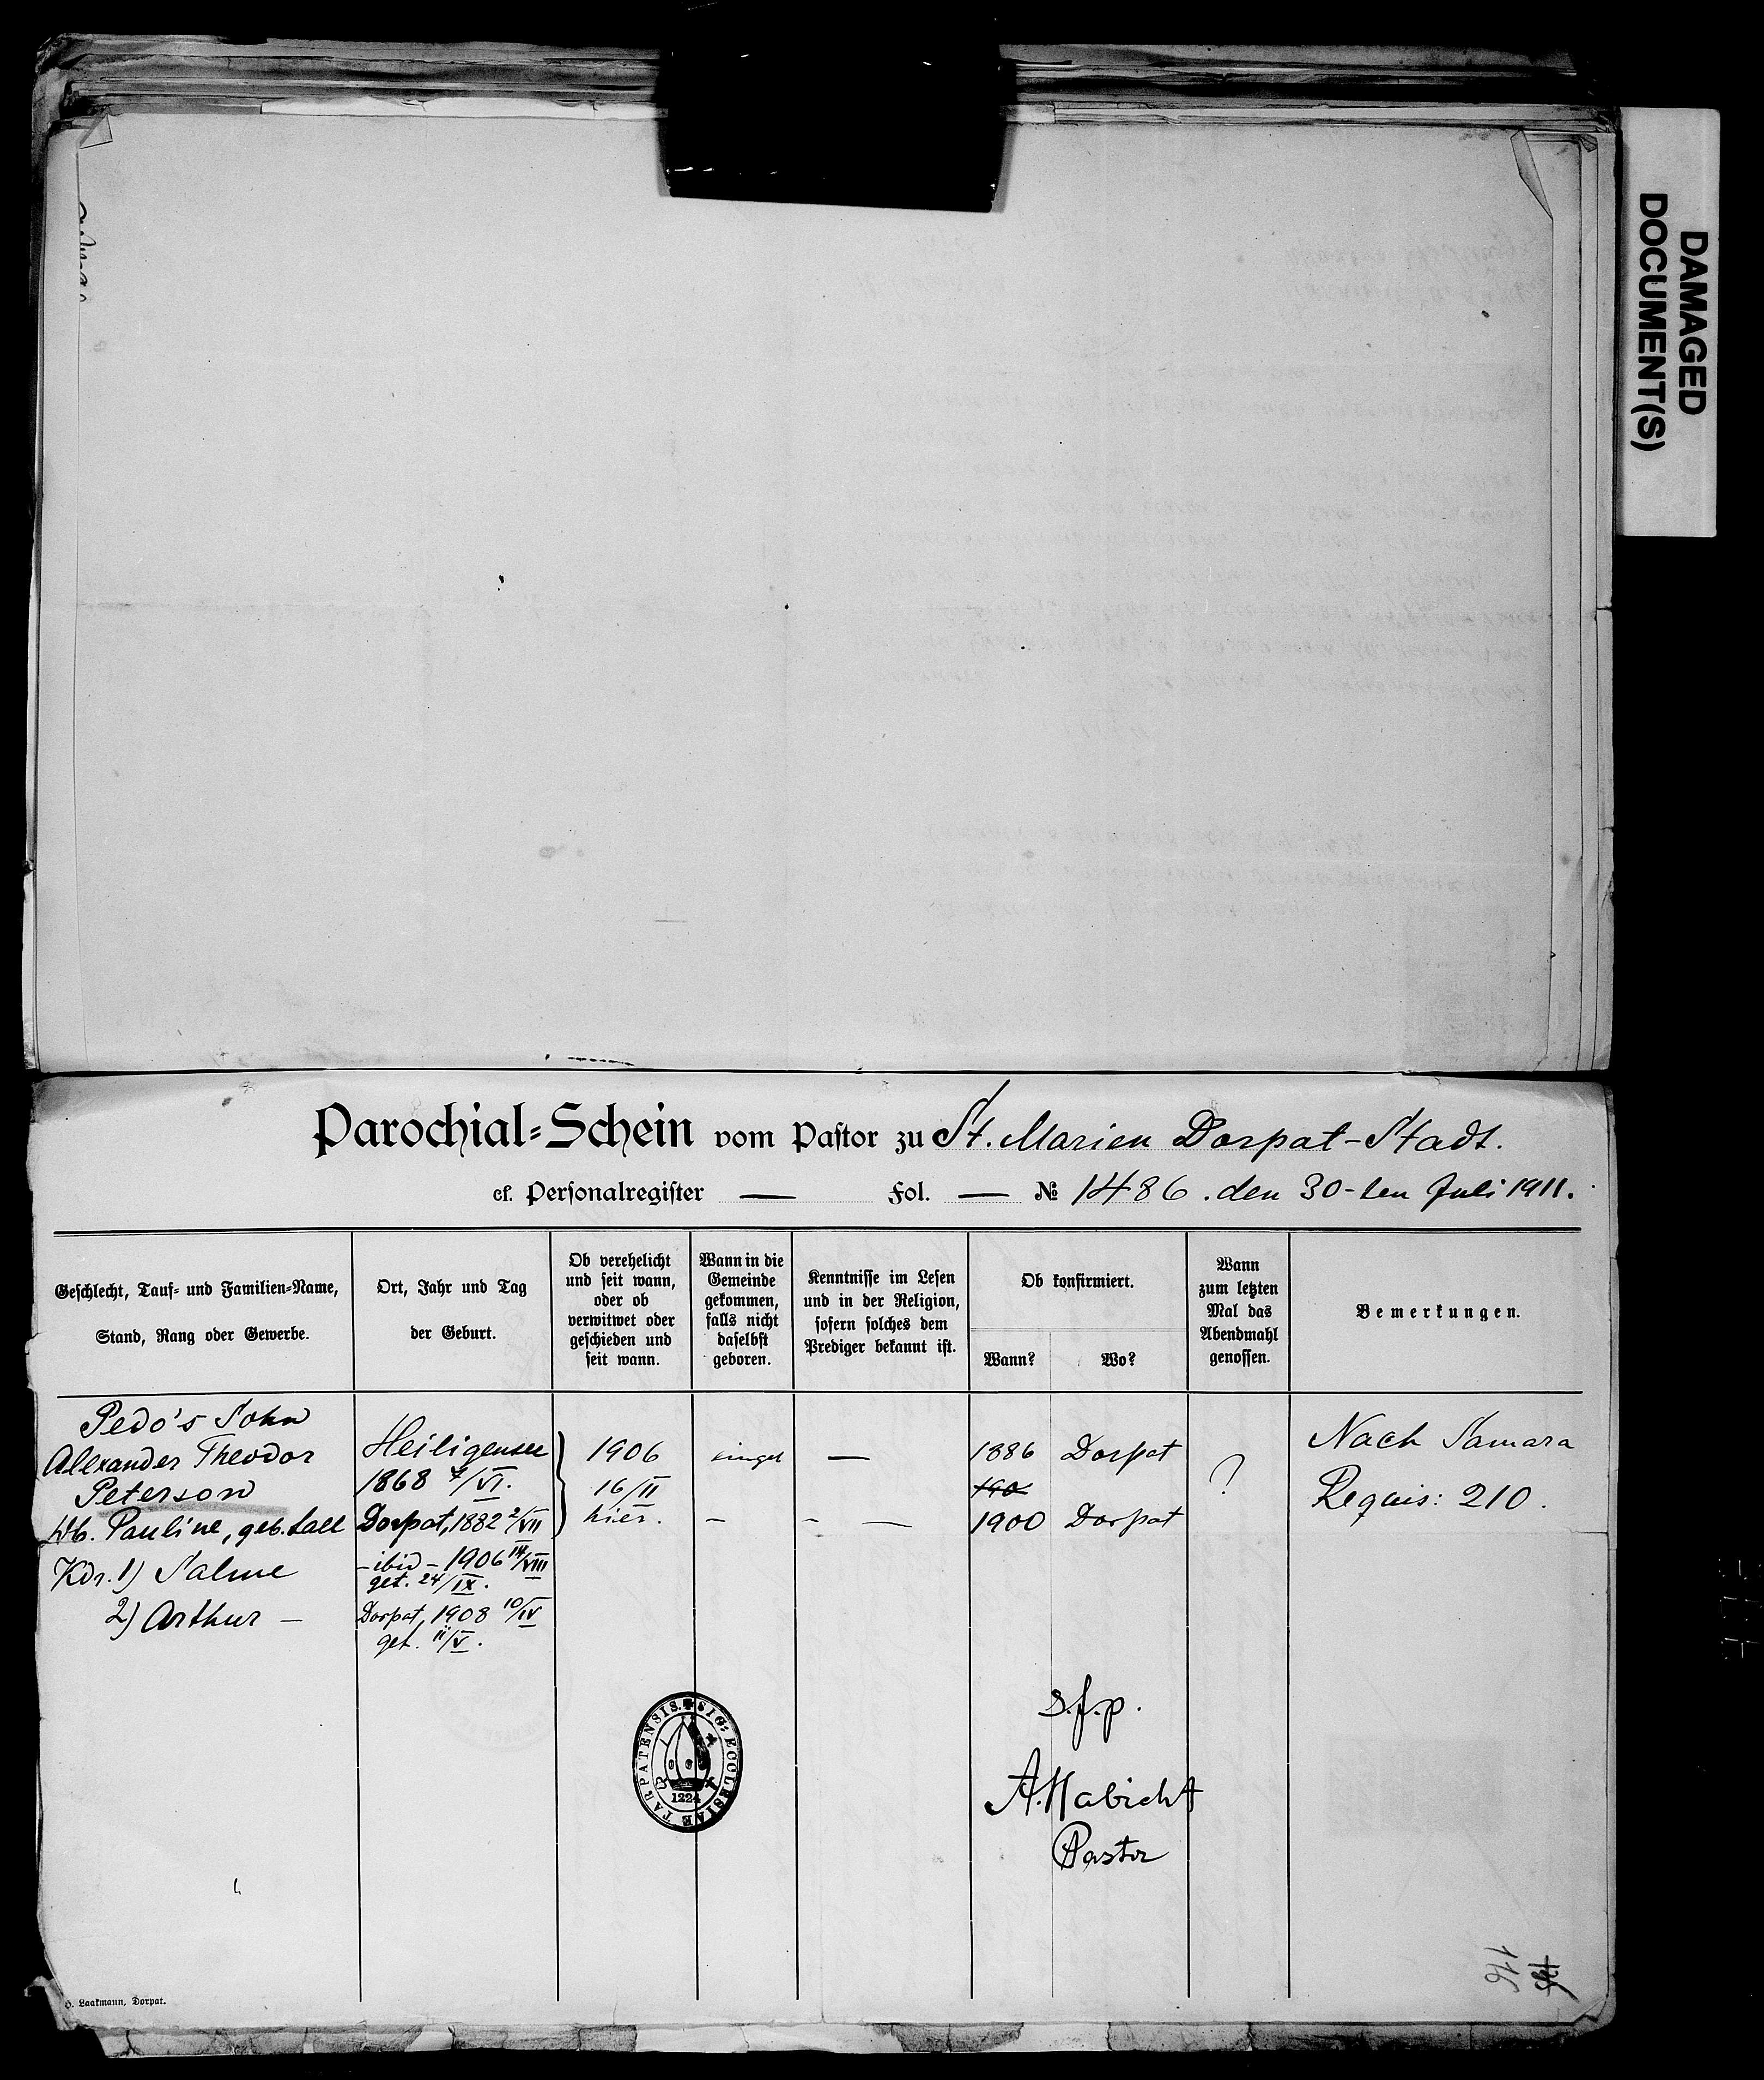 DAMAGED
DOCUMENT(S)
Parochial-Schein vom Pastor zu St. Marien Dorpat-Stadt.
cf. Personalregister — Fol. — № 1486. den 30-ten Juli 1911.
Geschlecht, Tauf- und Familien-Name,
Stand, Rang oder Gewerbe.
Ort, Jahr und Tag
der Geburt.
Ob verehelicht
und seit wann,
oder ob
verwitwet oder
geschieden und
seit wann.
Wann in die
Gemeinde
gekommen,
falls nicht
daselbst
geboren.
Kenntnisse im Lesen
und in der Religion,
sofern solches dem
Prediger bekannt ist.
Ob konfirmiert.
Wann?
Wo?
Wann
zum letzten
Mal das
Abendmahl
genossen.
Bemerkungen.
Pedo's Sohn
Alexander Theodor
Peterson
Wb. Pauline, geb. Sall
Kdr. 1) Salme
2) Arthur –
Heiligensee
1868 7/VI.
Dorpat, 1882 2/VII
– ibid – 1906 14/VIII
get. 24/IX.
Dorpat, 1908 10/IV
get. 11/V.
1906
16/II
hier.
–
—
– —
1886 Dorpat
190
1900 Dorpat
?
Nach Samara
Requis: 210.
SIG: ECCLESIAE TARPATENSIS.
1224
s.f.p.
A. Habicht
Pastor
116
H. Laakmann, Dorpat.